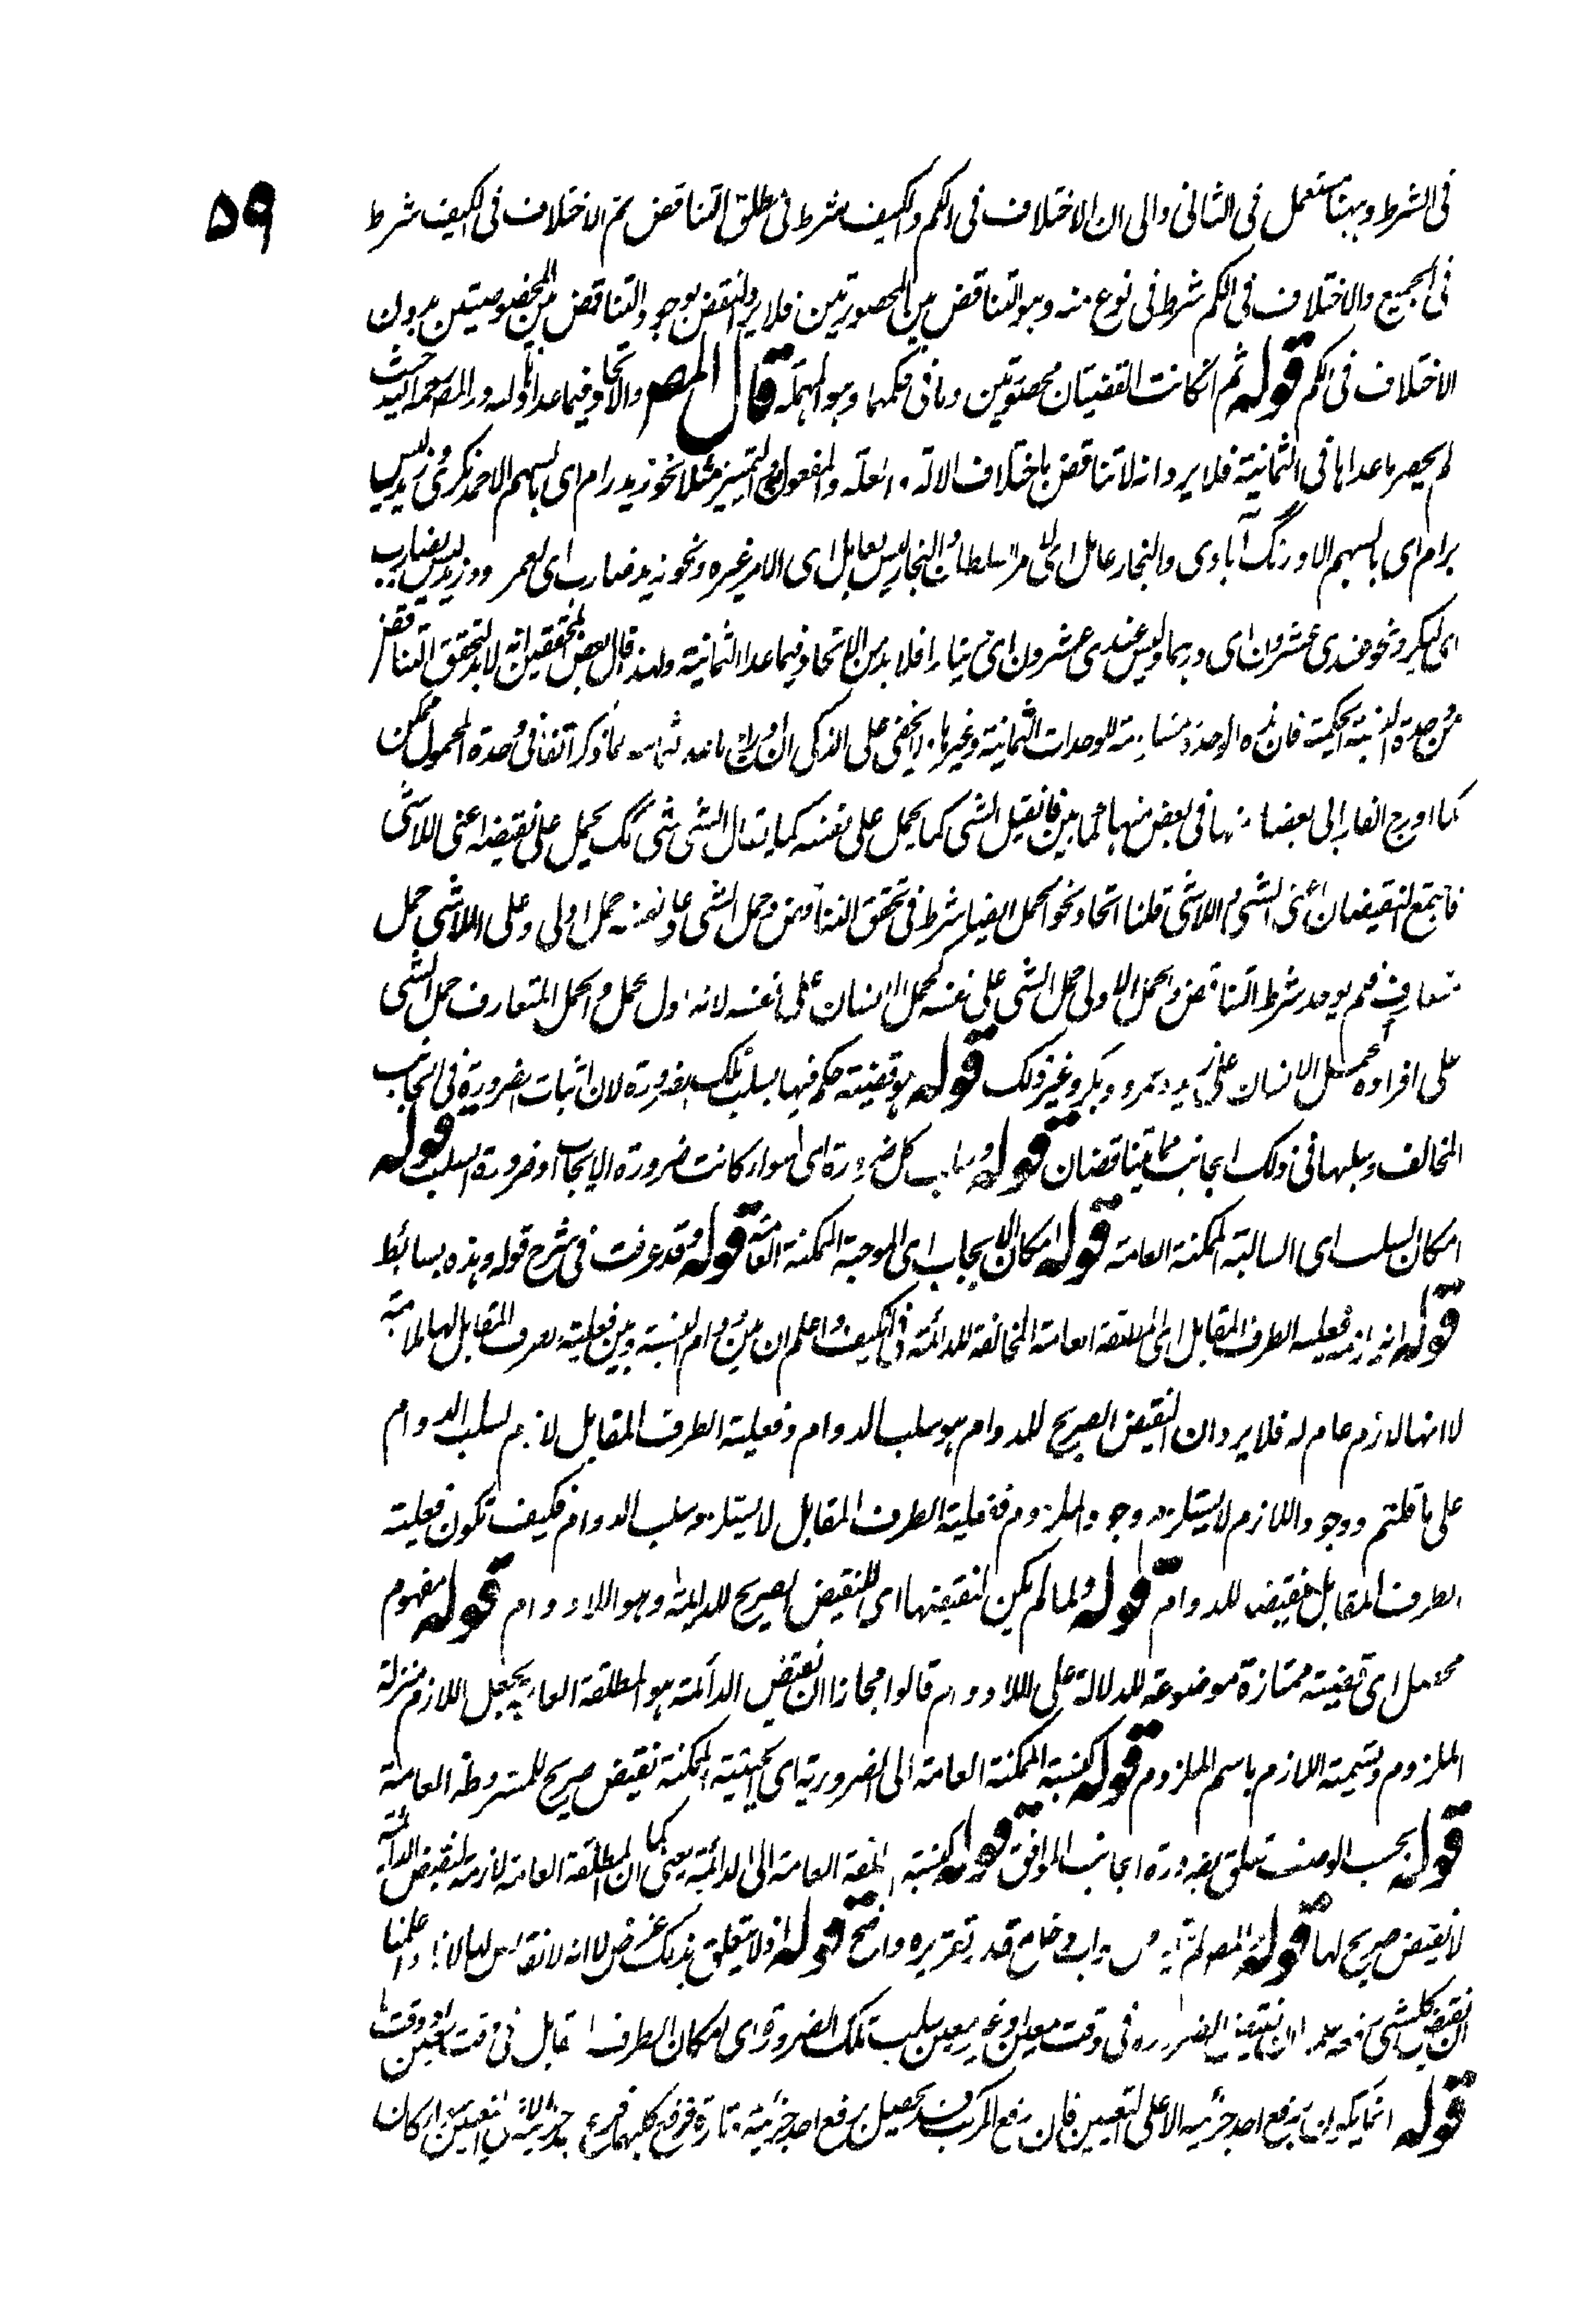 ٥٩
فى الشرط وههنا مستعمل فى الثانى والى ان الاختلاف فى الكم والكيف شرط فى مطلق التناقض ثم الاختلاف فى الكيف شرط
فى الجميع والاختلاف فى الكم شرط فى نوع منه وهو التناقض بين المحصورتين فلا يرد النقض بوجود التناقض بين المخصوصيتين بدون
الاختلاف فى الكم قوله ثم انكانت القضيتان محصورتين وما فى حكمهما وهو المهملة قال المصـ والاتحاد فيما عداها لله در المصـ رحمه الله حيث
لم يحصر ما عداها فى الثمانية فلا يرد انه لا تناقض باختلاف الآلة والعلة والمفعول به والتميز مثلا نحو زيد رام اى بالسهم الاحمد نگرى وزيد ليس
برام اى بالسهم الاورنگ آبادى والنجار عامل اى لامر السلطان والنجار ليس بعامل اى لامر غيره ونحو زيد ضارب اى لعمر ووزيد ليس بضارب
اى لبكر ونحو عندى عشرون اى درهما وليس عندى عشرون اى دينارا فلا بد من الاتحاد فيما عدا الثمانية ولهذا قال بعض المحققين انه لا بد لتحقق التناقض
من وحدة النسبة الحكمية فان هذه الوحدة للوحدات الثمانية وغيرها لا يخفى على الذكى ان ادراك ما عد ثمانية مما ذكر آنفا فى وحدة المحمول ممكن
كما ادرج الفارابى بعضا منها فى بعض منها كما بين فانقيل الشى كما يحمل على نفسه كما يقال الشى شى كك يحمل على نقيضه اعنى اللاشى
فاجتمع النقيضان اعنى الشى واللاشى قلنا اتحاد نحو الحمل ايضا شرط فى تحقق التناقض وحمل الشى على نفسه حمل اولى وعلى اللاشى حمل
متعارف فلم يوجد شرط التناقض والحمل الاولى حمل الشى على نفسه كحمل الانسان على نفسه لانه اول حمل والحمل المتعارف حمل الشى
على افراده كحمل الانسان على زيد وعمرو وبكر وغير ذلك قوله هو قضية حكم فيها بسلب تلك الضرورة لان اثبات الضرورة فى الجانب
المخالف وسلبها فى ذلك الجانب مما يتناقضان قوله وسلب كل ضرورة اى سواء كانت ضرورة الايجاب او ضرورة السلب قوله
امكان السلب اى السالبة الممكنة العامة قوله امكان الايجاب اى الموجبة الممكنة العامة قوله قد عرفت فى شرح قوله وهذه بسائط
قوله انه يلزمه فعلية الطرف المقابل اى المطلقة العامة المخالفة للدائمة فى الكيف واعلم ان بين دوام النسبة وبين فعلية الطرف المقابل لها ملازمة
لا انها لازم عام له فلا يرد ان النقيض الصريح للدوام هو سلب الدوام وفعلية الطرف المقابل لازم لسلب الدوام
على ما قلتم ووجود اللازم لا يستلزم وجود الملزوم ففعلية الطرف المقابل لا يستلزم سلب الدوام فكيف تكون فعلية
الطرف المقابل نقيضا للدوام قوله ولما لم يكن لنقيضها اى للنقيض الصريح للدائمة وهو اللادوام قوله مفهوم
محصل اى قضية ممتازة موضوعة للدلالة على اللادوام قالوا مجازا ان نقيض الدائمة هو المطلقة العامة بجعل اللازم منزلة
الملزوم وتسمية اللازم باسم الملزوم قوله كنسبة الممكنة العامة الى الضرورية اى الحينية الممكنة نقيض صريح للمشروطة العامة
قوله بحسب الوصف تعلق بضرورة الجانب الموافق قوله كنسبة المطلقة العامة الى الدائمة يعنى كما ان المطلقة العامة لازمة لنقيض الدائمة
لا نقيض صريح لها قوله المصـ قد تقريره واضح قوله اذ لا يتعلق بذلك غرض لا انه لا نقائض لها لانا اذا علمنا
ان نقيض كل شى رفعه علم ان نقيض الضرورة فى وقت معين او غير معين سلب تلك الضرورة اى امكان الطرف المقابل فى وقت معين او وقت ما
قوله انما يكون برفع احد جزئيه لا على التعيين فان رفع المركب قد يحصل برفع احد جزئيه تارة